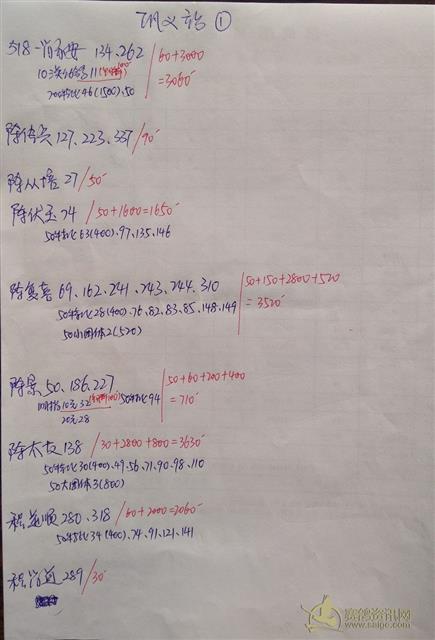 巩义站 ①
518-肖永安 134、262 60+3000
=3060
20特比46(1500)、50
陈传兴 127、223、337/90
陈从培 27/50
陈伏玉 74/50+1600=1650
50特比63(400)、97、135、146
陈复喜 69、162、241、243、244、310 50+150+2800+520
=3520
50特比28(400)、76、82、83、85、148、149
50小团体2(520)
陈景 50、186、227 50+60+200+400
=710
10元32 50特比94
20元28
陈太友 138/30+2800+800=3630
50特比30(400)、49、56、71、90、98、110
50大团体3(800)
程菶顺 280、318/60+2000=2060
50特比34(400)、74、91、121、141
289/30
赛鸽资讯网
www.saige.com